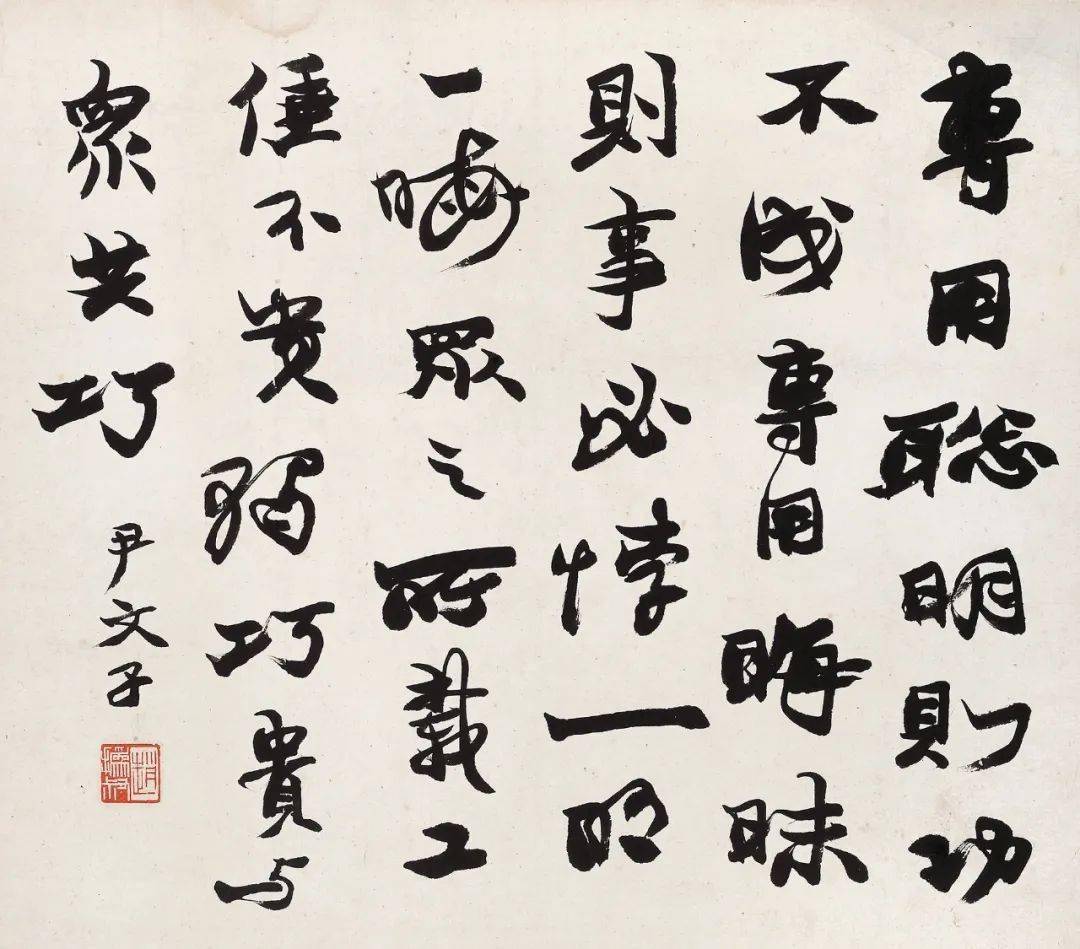 專用聡明則功
不成專用晦昧
則事必悖一明
一晦眾之所載工
倕不貴獨巧貴与
眾共巧
尹文子